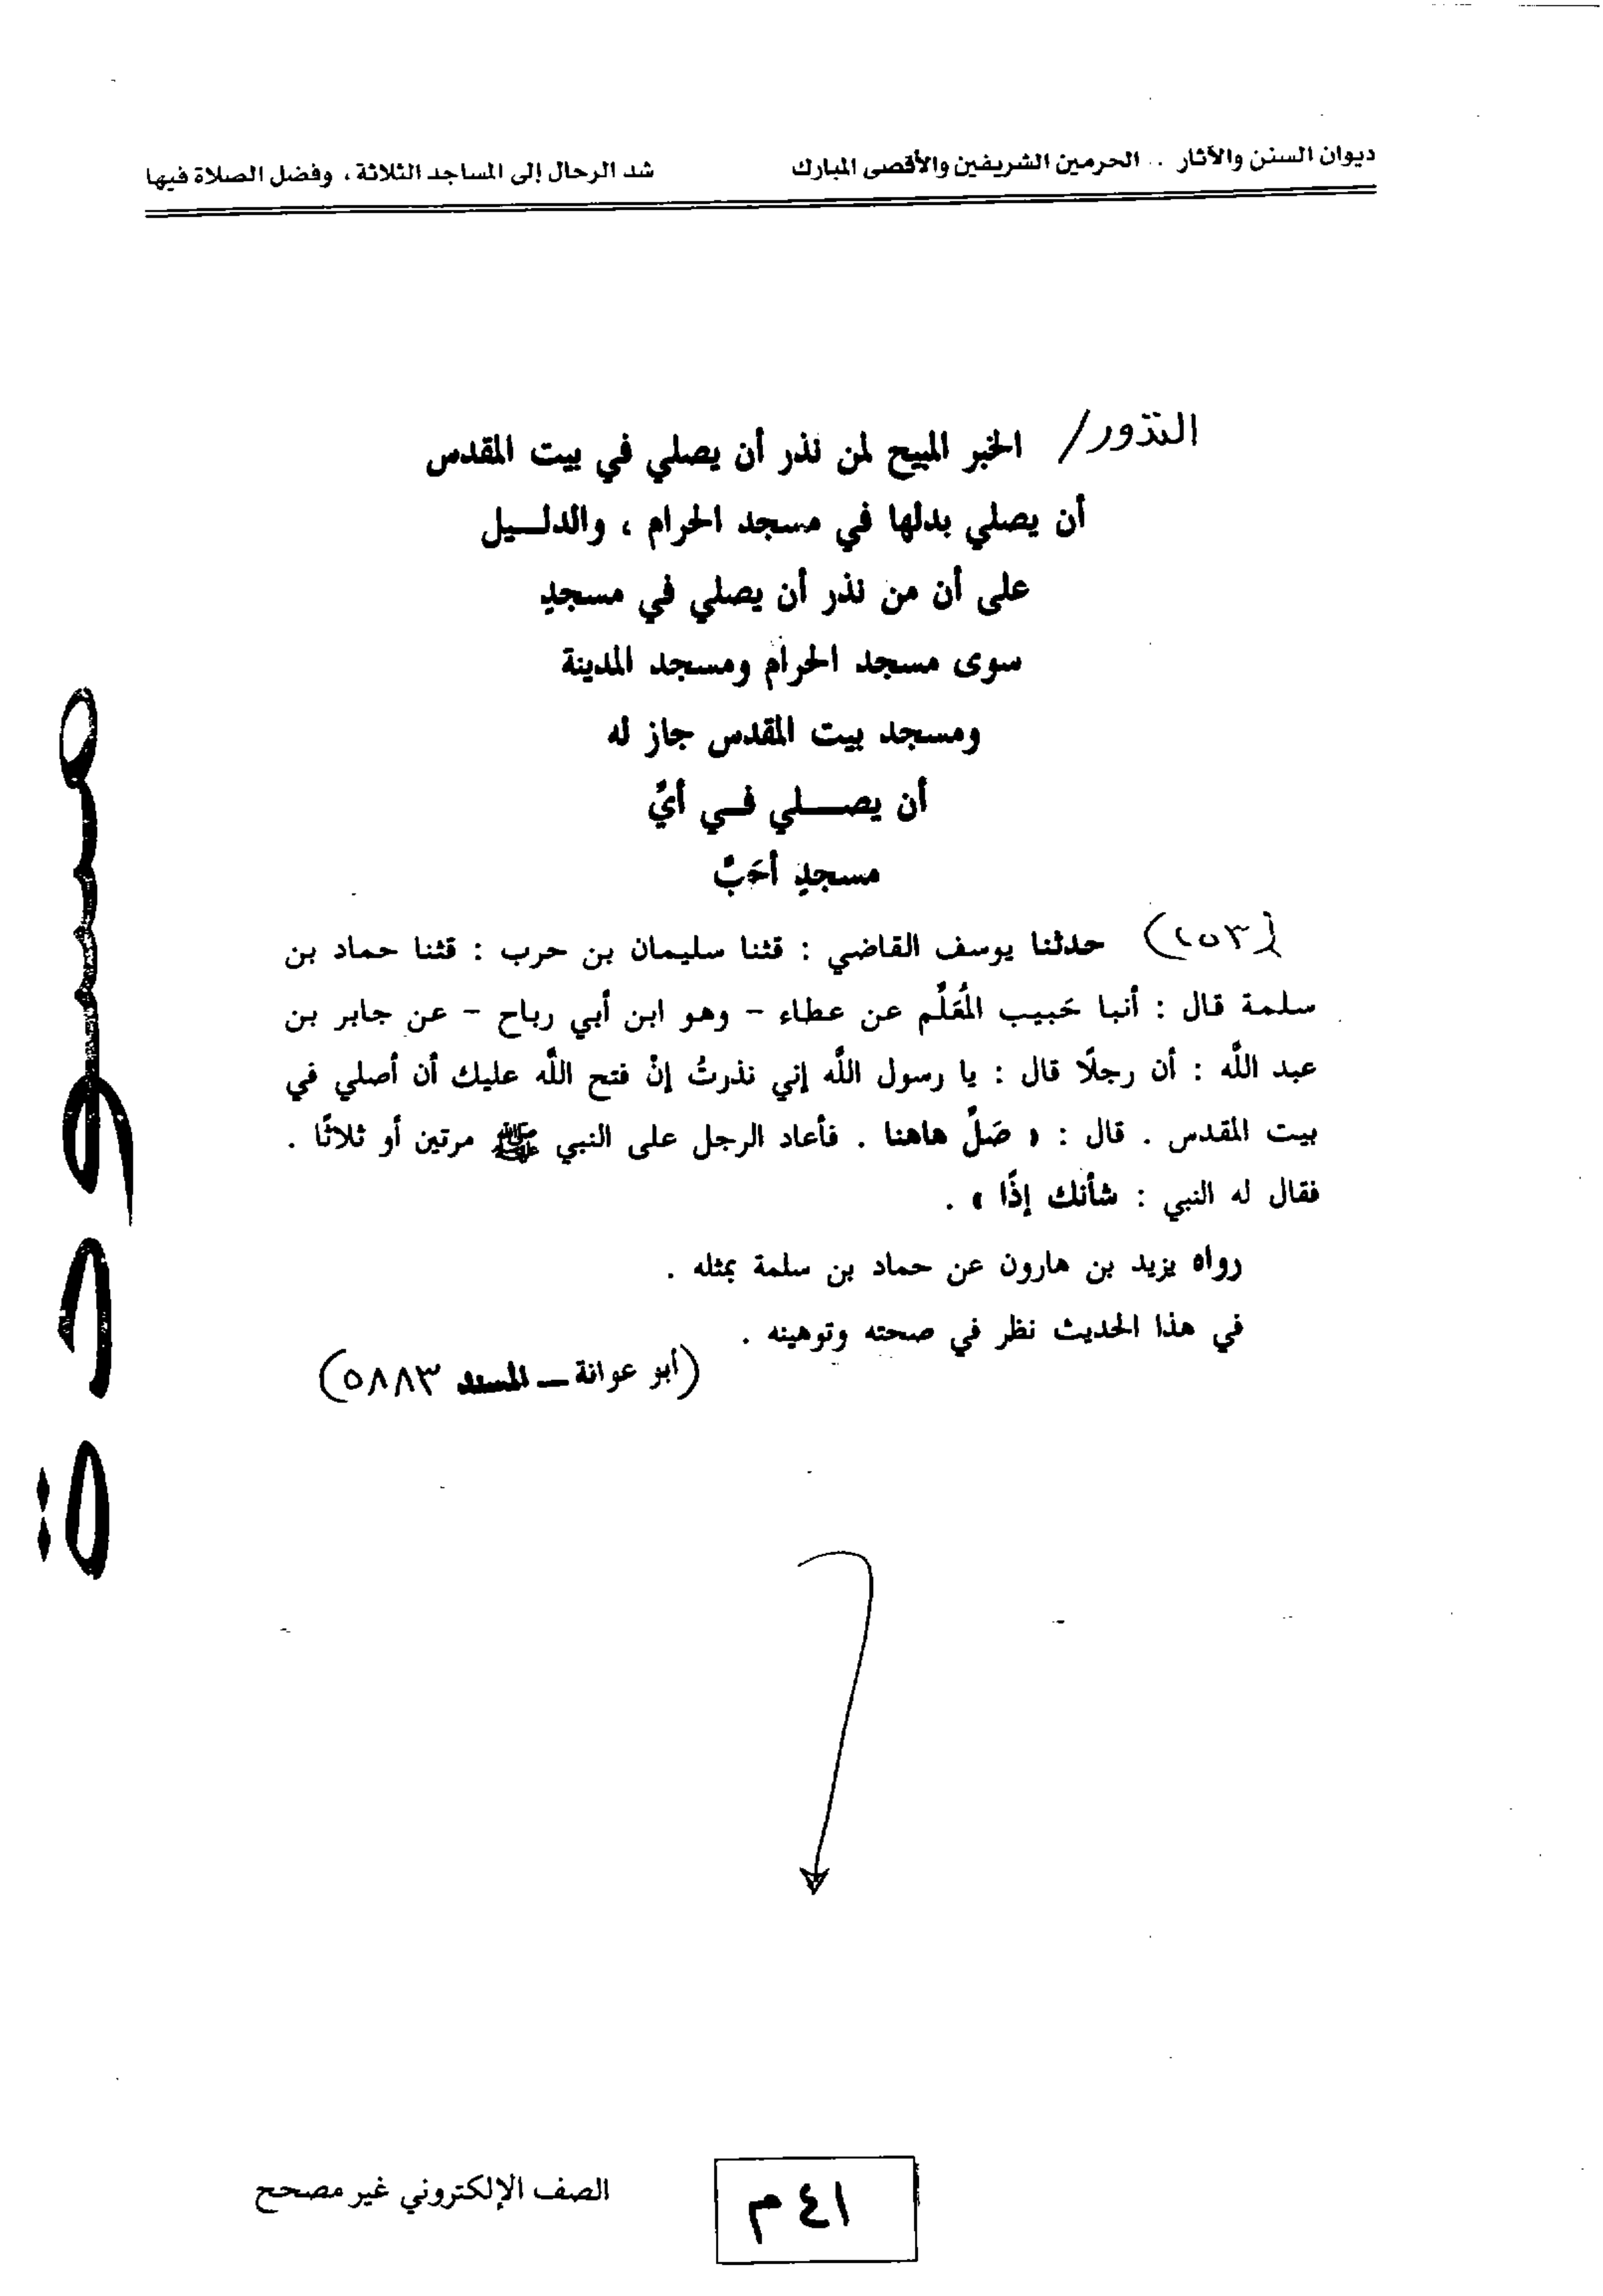 ديوان السنن والآثار .. الحرمين الشريفين والأقصى المبارك
شد الرحال إلى المساجد الثلاثة ، وفضل الصلاة فيها
النذور/ الخبر المبيح لمن نذر أن يصلي في بيت المقدس
أن يصلي بدلها في مسجد الحرام ، والدلـــيل
على أن من نذر أن يصلي في مسجدٍ
سوى مسجد الحرام ومسجد المدينة
ومسجد بيت المقدس جاز له
أن يصـــلي فـــي أيِّ
مسجدٍ أحَبَّ
(٢٥٣) حدثنا يوسف القاضي : قثنا سليمان بن حرب : قثنا حماد بن
سلمة قال : أنبا حَبيب المُعَلِّم عن عطاء – وهو ابن أبي رباح – عن جابر بن
عبد اللَّه : أن رجلًا قال : يا رسول اللَّه إني نذرتُ إنْ فتح اللَّه عليك أن أصلي في
بيت المقدس . قال : « صَلِّ هاهنا . فأعاد الرجل على النبي ﷺ مرتين أو ثلاثًا .
فقال له النبي : شأنك إذًا » .
رواه يزيد بن هارون عن حماد بن سلمة بمثله .
في هذا الحديث نظر في صحته وتوهينه .
(أبو عوانة ــ المسند ٥٨٨٣)
مسودة
١٤ م
الصف الإلكتروني غير مصحح